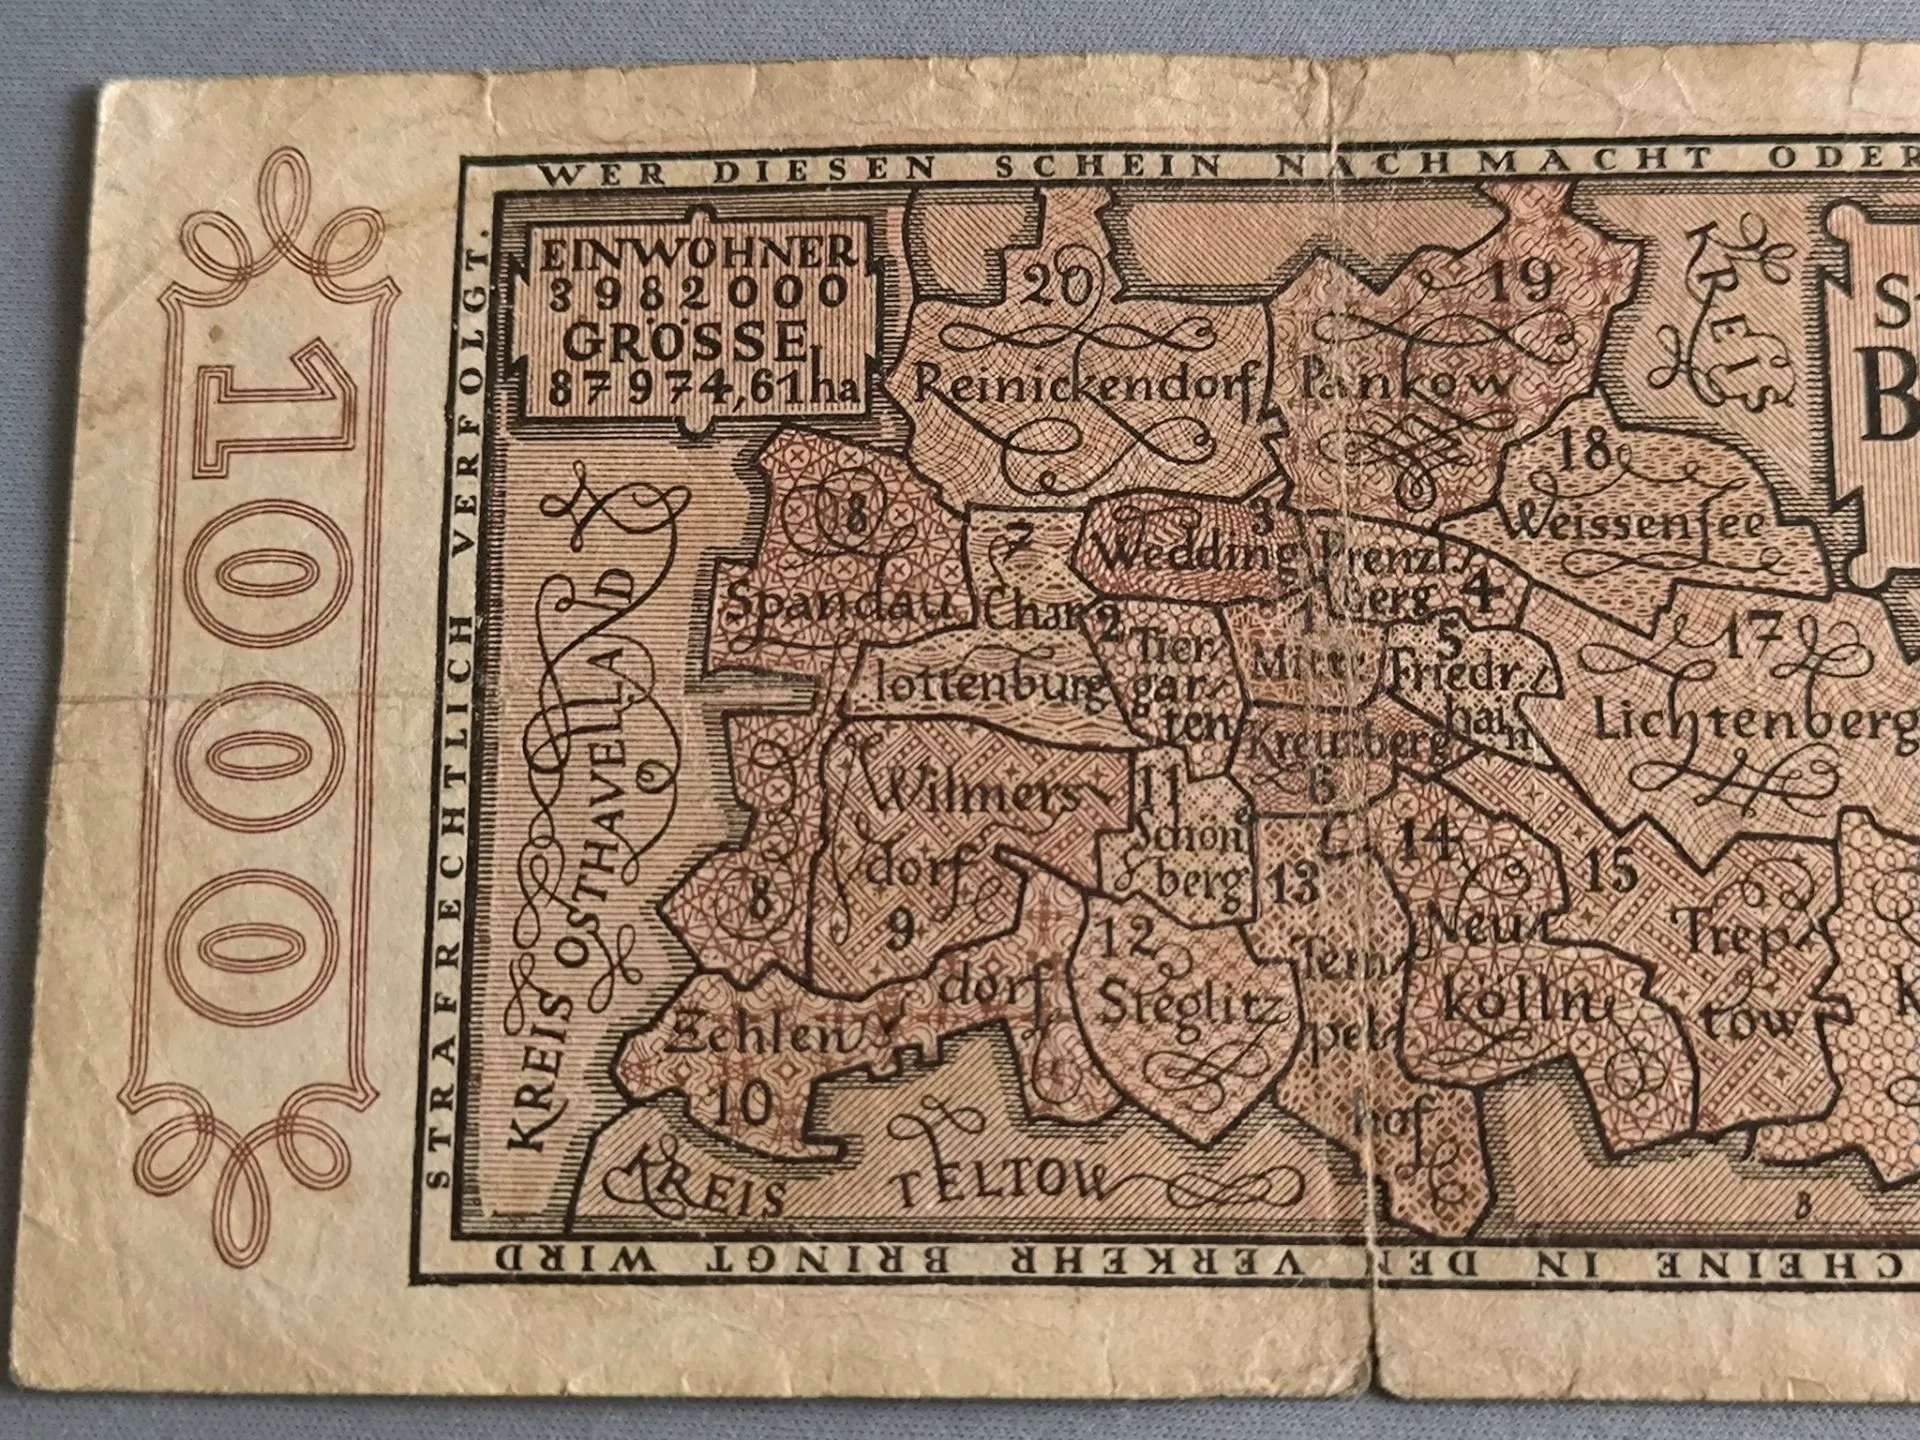 WER DIESEN SCHEIN NACHMACHT ODER
STRAFRECHTLICH VERFOLGT.
10000
EINWOHNER
3982000
GRÖSSE
87974,61ha
KREIS OSTHAVELLAND
20
Reinickendorf
19
Pankow
KREIS
S
B
18
Weissensee
8
Spandau
7
Char
lottenburg
3
Wedding
Prenzl.
Berg 4
2
Tier
gar
ten
1
Mitte
5
Friedr.
hain
17
Lichtenberg
Kreuzberg
6
Wilmers
dorf
9
8
11
Schön
berg
13
Tem
pel
hof
14
Neu
kölln
15
Trep
tow
K
12
Steglitz
Zehlen
dorf
10
KREIS TELTOW
B
CHEINE IN DEN VERKEHR BRINGT WIRD